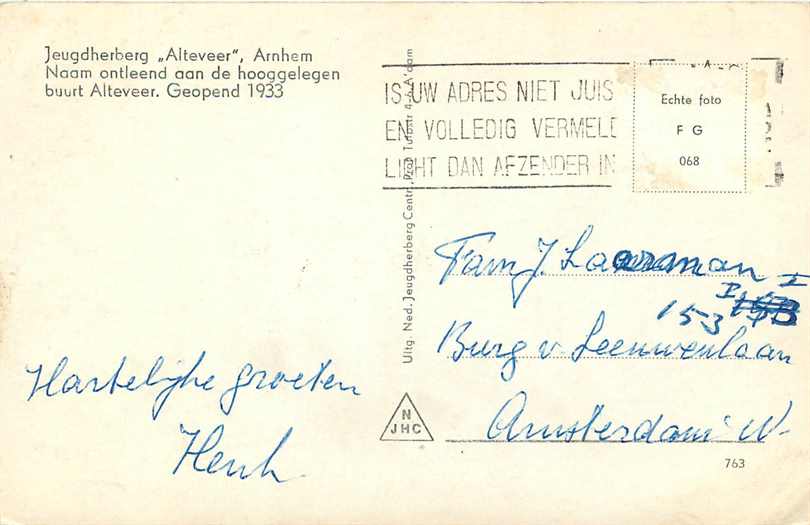 Jeugdherberg „Alteveer", Arnhem
Naam ontleend aan de hooggelegen
buurt Alteveer. Geopend 1933
IS UW ADRES NIET JUIS
EN VOLLEDIG VERMELD
LICHT DAN AFZENDER IN
Echte foto
F G
068
Uitg. Ned. Jeugdherberg Centr., Prof. Tulpstr 4-6 A'dam
Fam J.
153 I
Burg v. Leeuwenlaan
Amsterdam W.
Hartelijke groeten
Henk
N
JHC
763